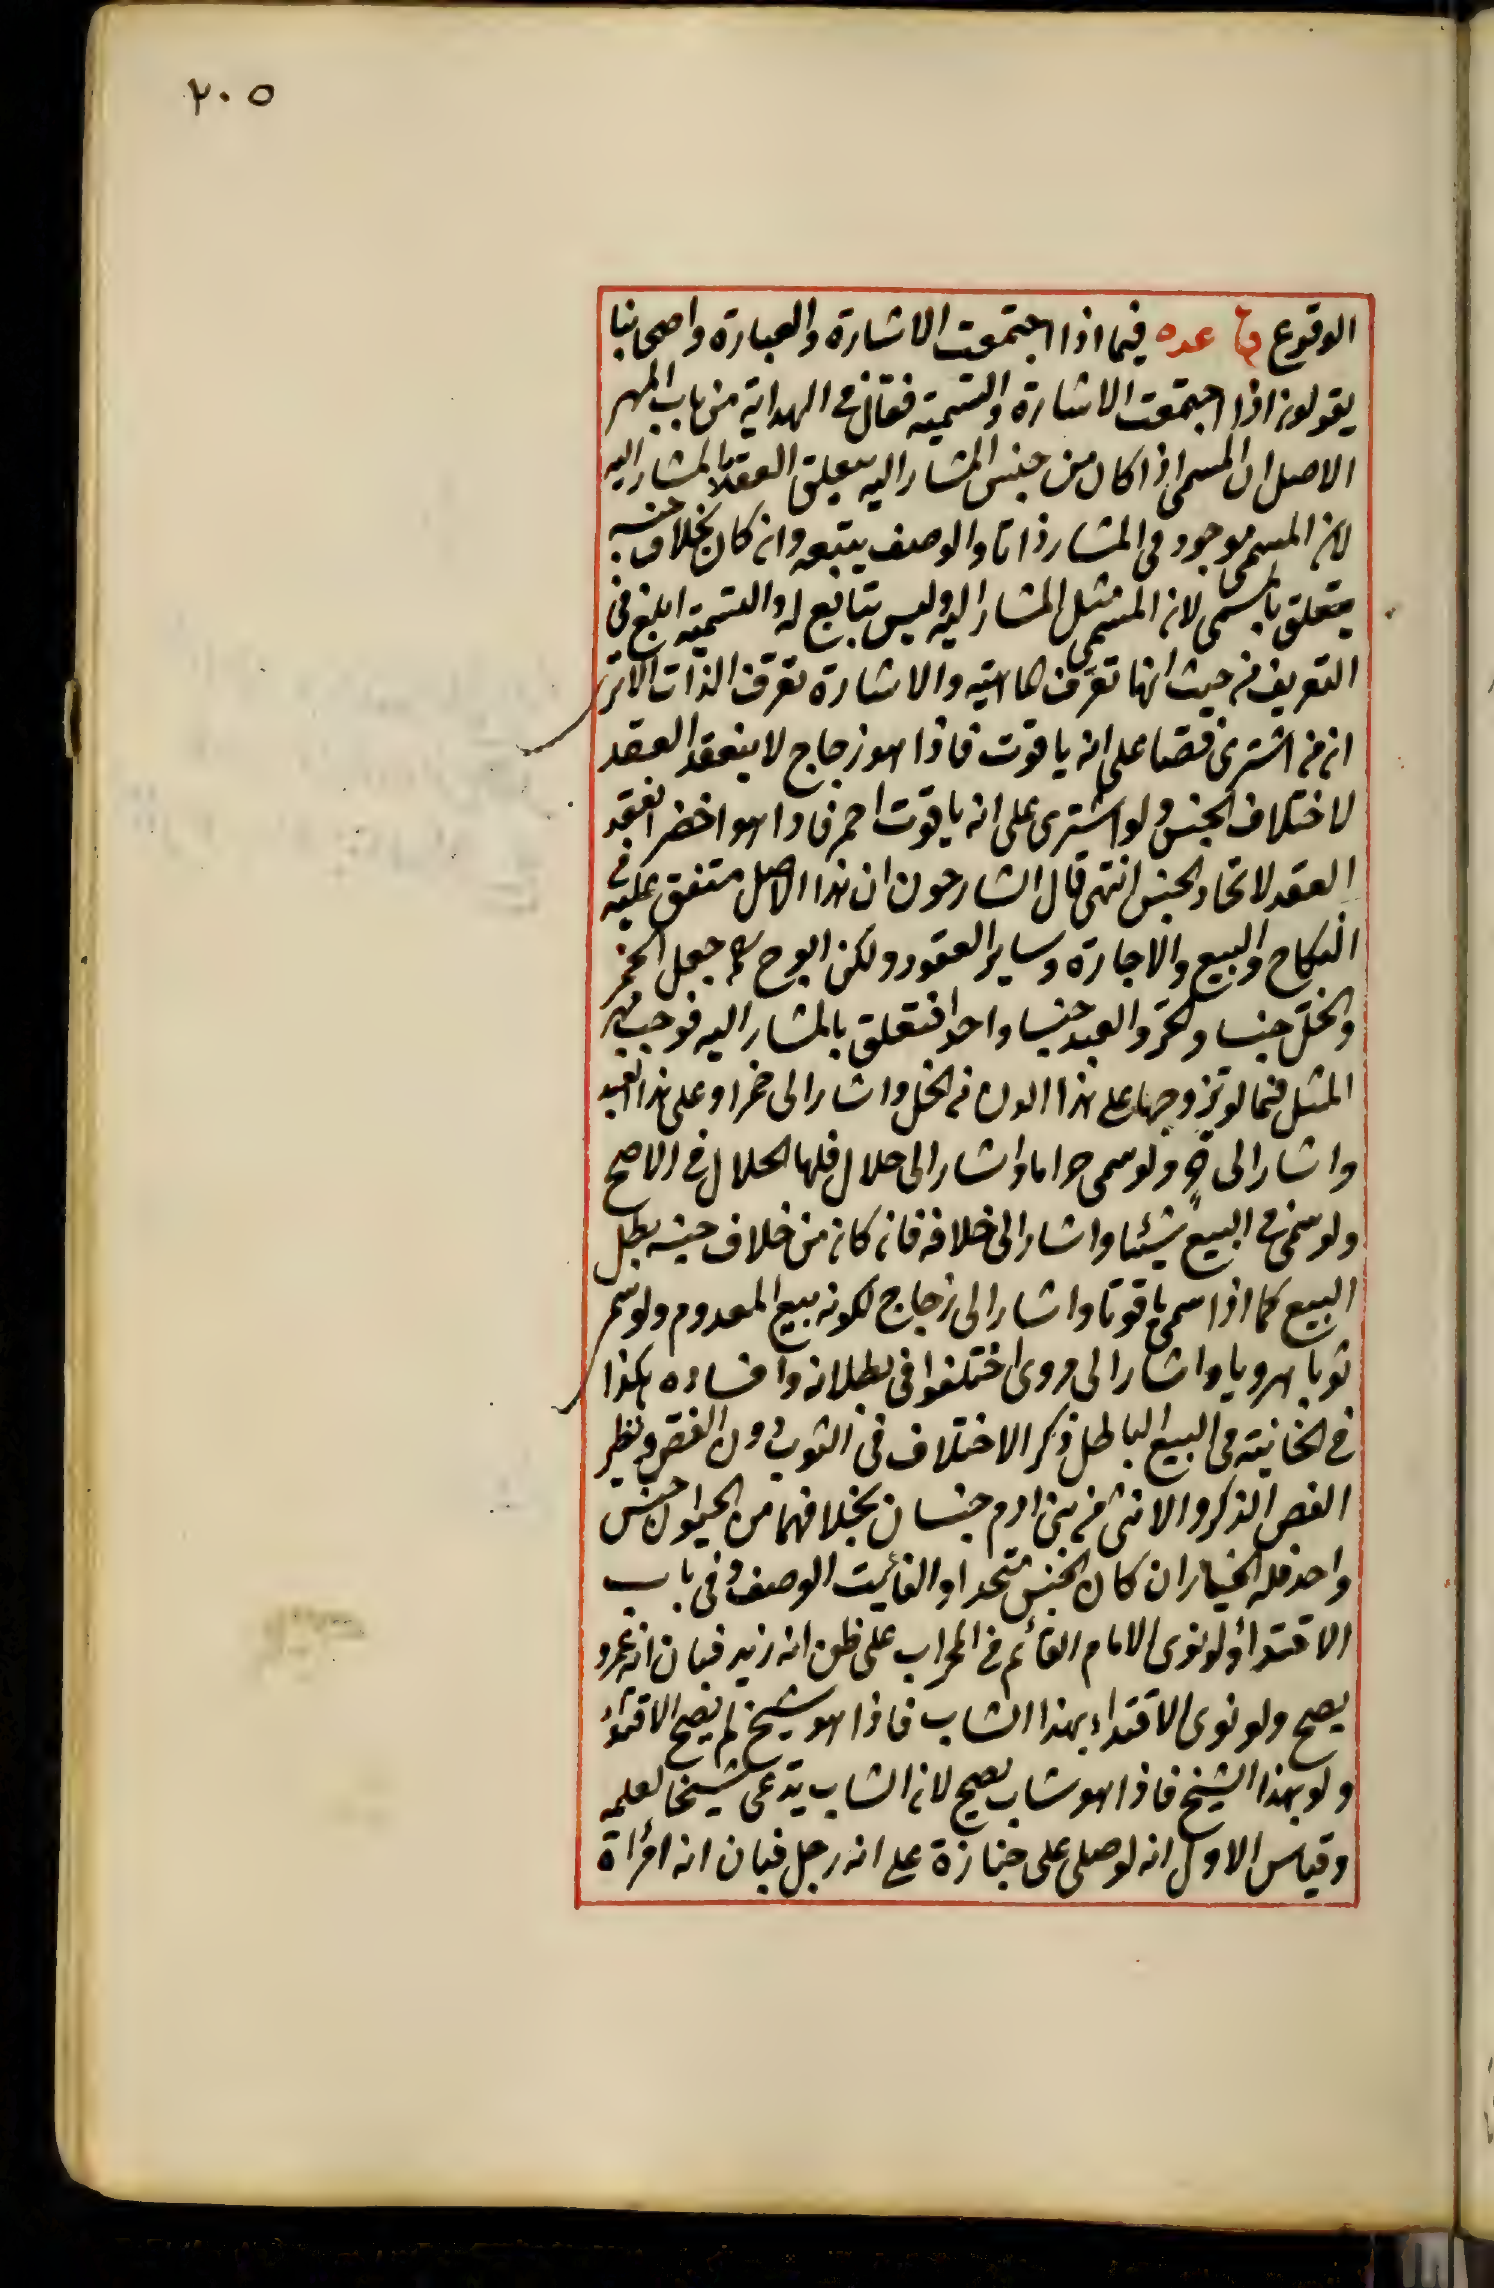 ٢٠٥
الوقوع قاعده فيما اذا اجتمعت الاشارة والعبارة واصحابنا
يقولون اذا اجتمعت الاشارة والتسمية فقال في الهداية من باب المهر
الاصل ان المسمى اذا كان من جنس المشار اليه يتعلق العقد بالمشار اليه
لان المسمى موجود في المشار ذاتا والوصف يتبعه وان كان بخلاف جنسه
يتعلق بالمسمى لان المسمى مثل المشار اليه وليس بتابع له والتسمية ابلغ في
التعريف من حيث انها تعرّف الماهية والاشارة تعرّف الذات الا ترى
ان من اشترى فصا على انه ياقوت فاذا هو زجاج لا ينعقد العقد
لاختلاف الجنس ولو اشترى على انه ياقوت احمر فاذا هو اخضر انعقد
العقد لاتحاد الجنس انتهى قال الشارحون ان هذا الاصل متفق عليه في
النكاح والبيع والاجارة وساير العقود ولكن ابو ح رح جعل الخمر
والخلّ جنسا والحرّ والعبد جنسا واحدا فتعلق بالمشار اليه فوجب مهر
المثل فيما لو تزوجها على هذا الدن من الخل واشار الى خمر او على هذا العبد
واشار الى حر ولو سمى حراما واشار الى حلال فلها الحلال في الاصح
ولو سمى في البيع شيئا واشار الى خلافه فان كان من خلاف جنسه بطل
البيع كما اذا سمى ياقوتا واشار الى زجاج لكونه بيع المعدوم ولو سمى
ثوبا هرويا واشار الى مروى اختلفوا في بطلانه وافساده هكذا
في الخانية في البيع الباطل ذكر الاختلاف في الثوب دون الفص ونظير
الفص الذكر والانثى من بنى ادم جنسان بخلافهما من الحيوان جنس
واحد فله الخيار ان كان الجنس متحدا والفائت الوصف وفي باب
الاقتداء ولو نوى الامام القائم في المحراب على ظن انه زيد فبان انه عمرو
يصح ولو نوى الاقتداء بهذا الشاب فاذا هو شيخ لم يصح الاقتداء
ولو بهذا الشيخ فاذا هو شاب يصح لان الشاب يدعى شيخا لعلمه
وقياس الاول انه لو صلى على جنازة على انه رجل فبان انه امرأة